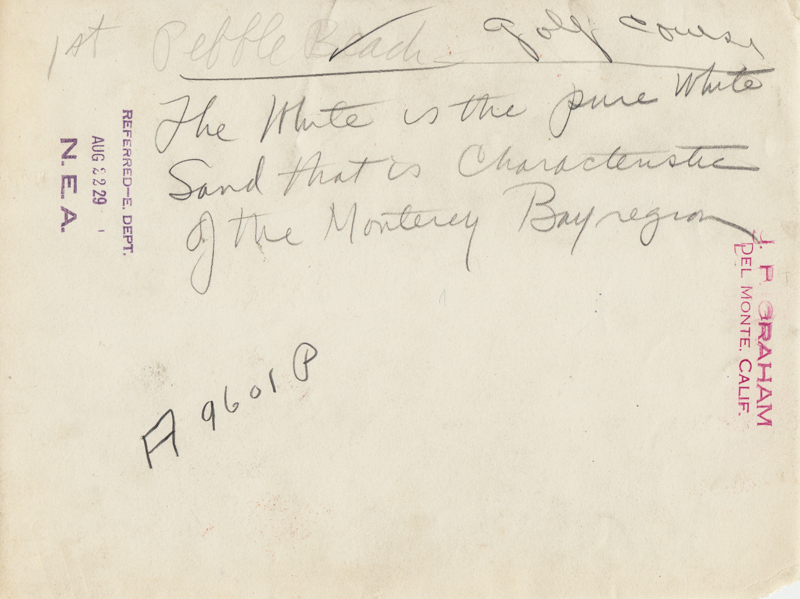 1st Pebble Beach golf course
The White is the pure White
Sand that is Characteristic
of the Monterey Bay region
REFERRED—E. DEPT.
AUG 22 29
N. E. A.
J. P. GRAHAM
DEL MONTE, CALIF.
A 9601 P